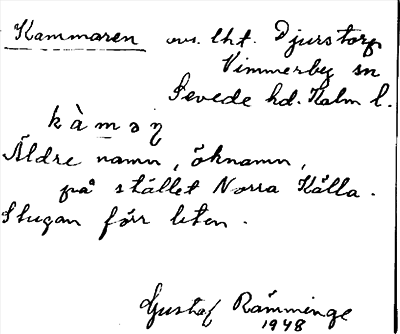 Kammaren avs. lht. Djurstorp
Vimmerby sn
Sevede hd. Kalm l.
kàməṇ
Äldre namn, öknamn,
på stället Norra Källa.
Stugan förr liten.
Gustaf Ramminge
1948